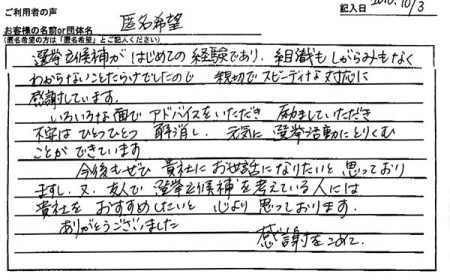 ご利用者の声
記入日 2010.10/3
お客様の名前or団体名 匿名希望
(匿名希望の方は「匿名希望」とご記入ください)
選挙立候補がはじめての経験であり、組織もしがらみもなく
わからないことだらけでしたので 親切でスピーディな対応に
感謝しています。
いろいろな面でアドバイスをいただき 励ましていただき
不安はひとつひとつ 解消し、元気に 選挙活動にとりくむ
ことができています
今後もぜひ 貴社にお世話になりたいと思っており
ますし、又、友人で 選挙立候補を考えている人には
貴社を おすすめしたいと 心より 思っております。
ありがとうございました
感謝をこめて、